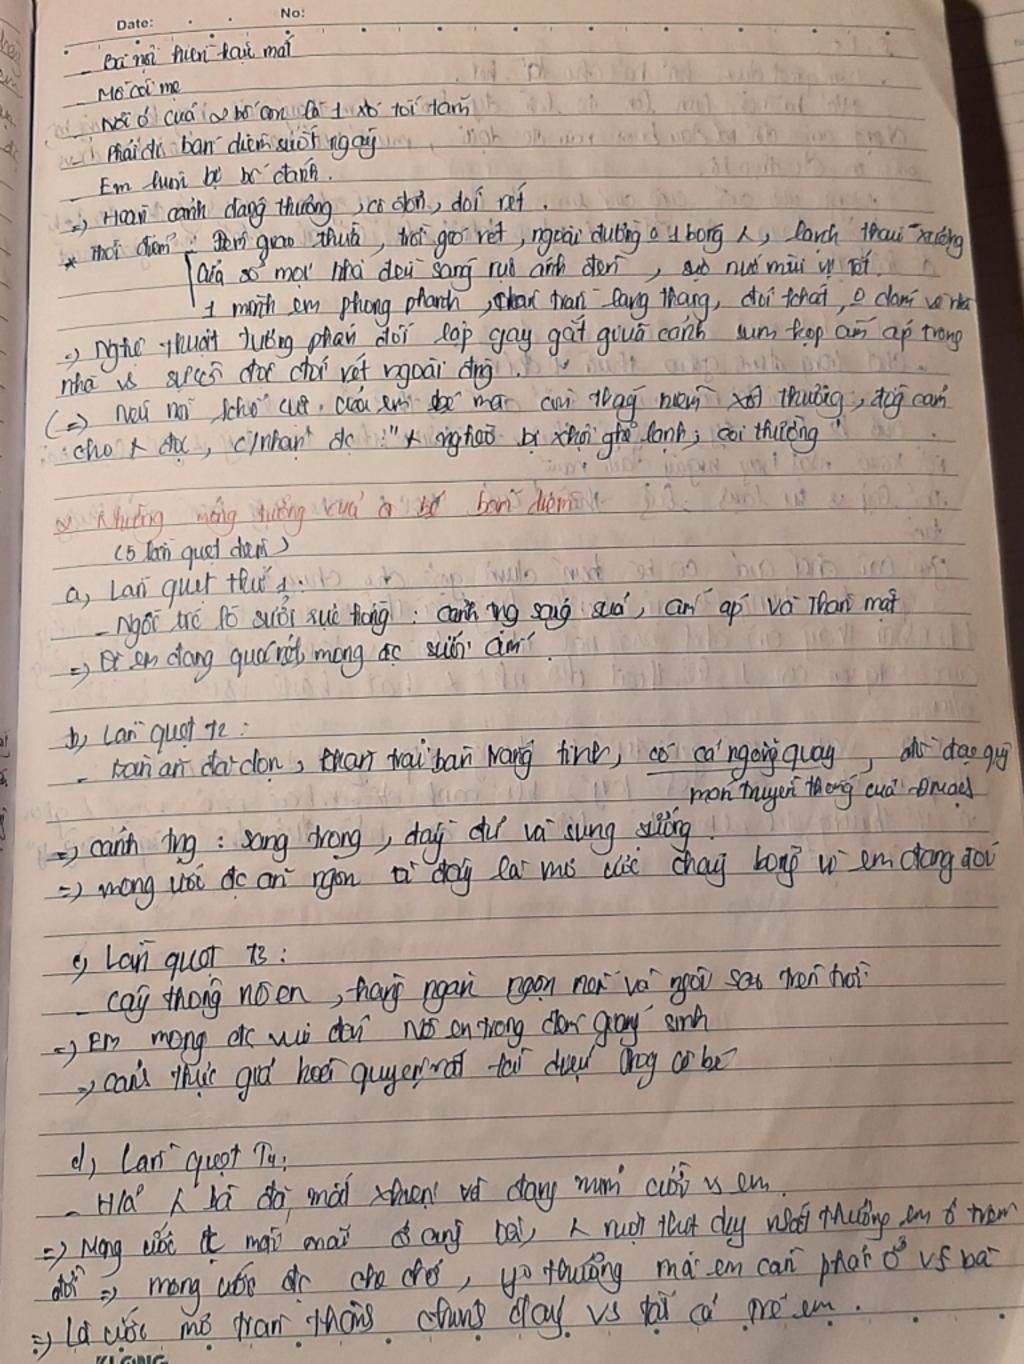 Date: No:
- Bà nội hiền hậu mất
- Mồ côi mẹ
- Nơi ở của 2 bố con là 1 xó tối tăm
- Phải đi bán diêm suốt ngày
- Em luôn bị bố đánh.
=> Hoàn cảnh đáng thương, cô đơn, đói rét.
* Thời điểm: Đêm giao thừa, trời gió rét, ngoài đường 0 1 bóng λ, lạnh thấu xương
Cửa sổ mọi nhà đều sáng rực ánh đèn, sực nức mùi vị
1 mình em phong phanh, chân trần lang thang, đói khát, 0 dám về nhà
=> Nghệ thuật tương phản đối lập gay gắt giữa cảnh sum họp ấm áp trong
nhà vs đói rét ngoài đg.
(=>) nỗi khổ cực của em bé mà còn thấy niềm xót thương, đồg cảm
cho λ đọc, c/nhận đc: "λ nghèo bị ghẻ lạnh, coi thường"
2, Những mộng tưởng của cô bé bán diêm
(5 lần quẹt diêm)
a, Lần quẹt thứ 1:
- Ngồi trc lò sưởi rực hồng: cảnh tg sáng sủa, ấm áp và thân mật
=> Vì em đang quá rét, mong đc sưởi ấm.
b, Lần quẹt T2:
- bàn ăn đã dọn, khăn trải bàn trắng tinh, có cả ngỗng quay, đồ đạc quý
món truyền thống của
=> cảnh tg: sang trọng, đầy đủ và sung sướng.
=> mong ước đc ăn ngon từ đấy là mơ ước cháy bỏng vì em đang đói
c, Lần quẹt T3:
- cây thông nô en, hàng ngàn ngọn nến và ngôi sao trên trời
=> Em mong đc vui đón Nô en trong đêm giáng sinh
=> cảnh thực giá
d, Lần quẹt T4:
- H/ả λ bà đã mất xhiện và đang mỉm cười vs em.
=> Mong ước đc mãi mãi ở cùng bà, λ ruột thịt duy nhất thương em ở trên
đời => mong ước đc che chở, yo thương mà em cần phải ở vs bà
=> Là ước mơ trân thành chính đáng vs tất cả trẻ em.
KLONG